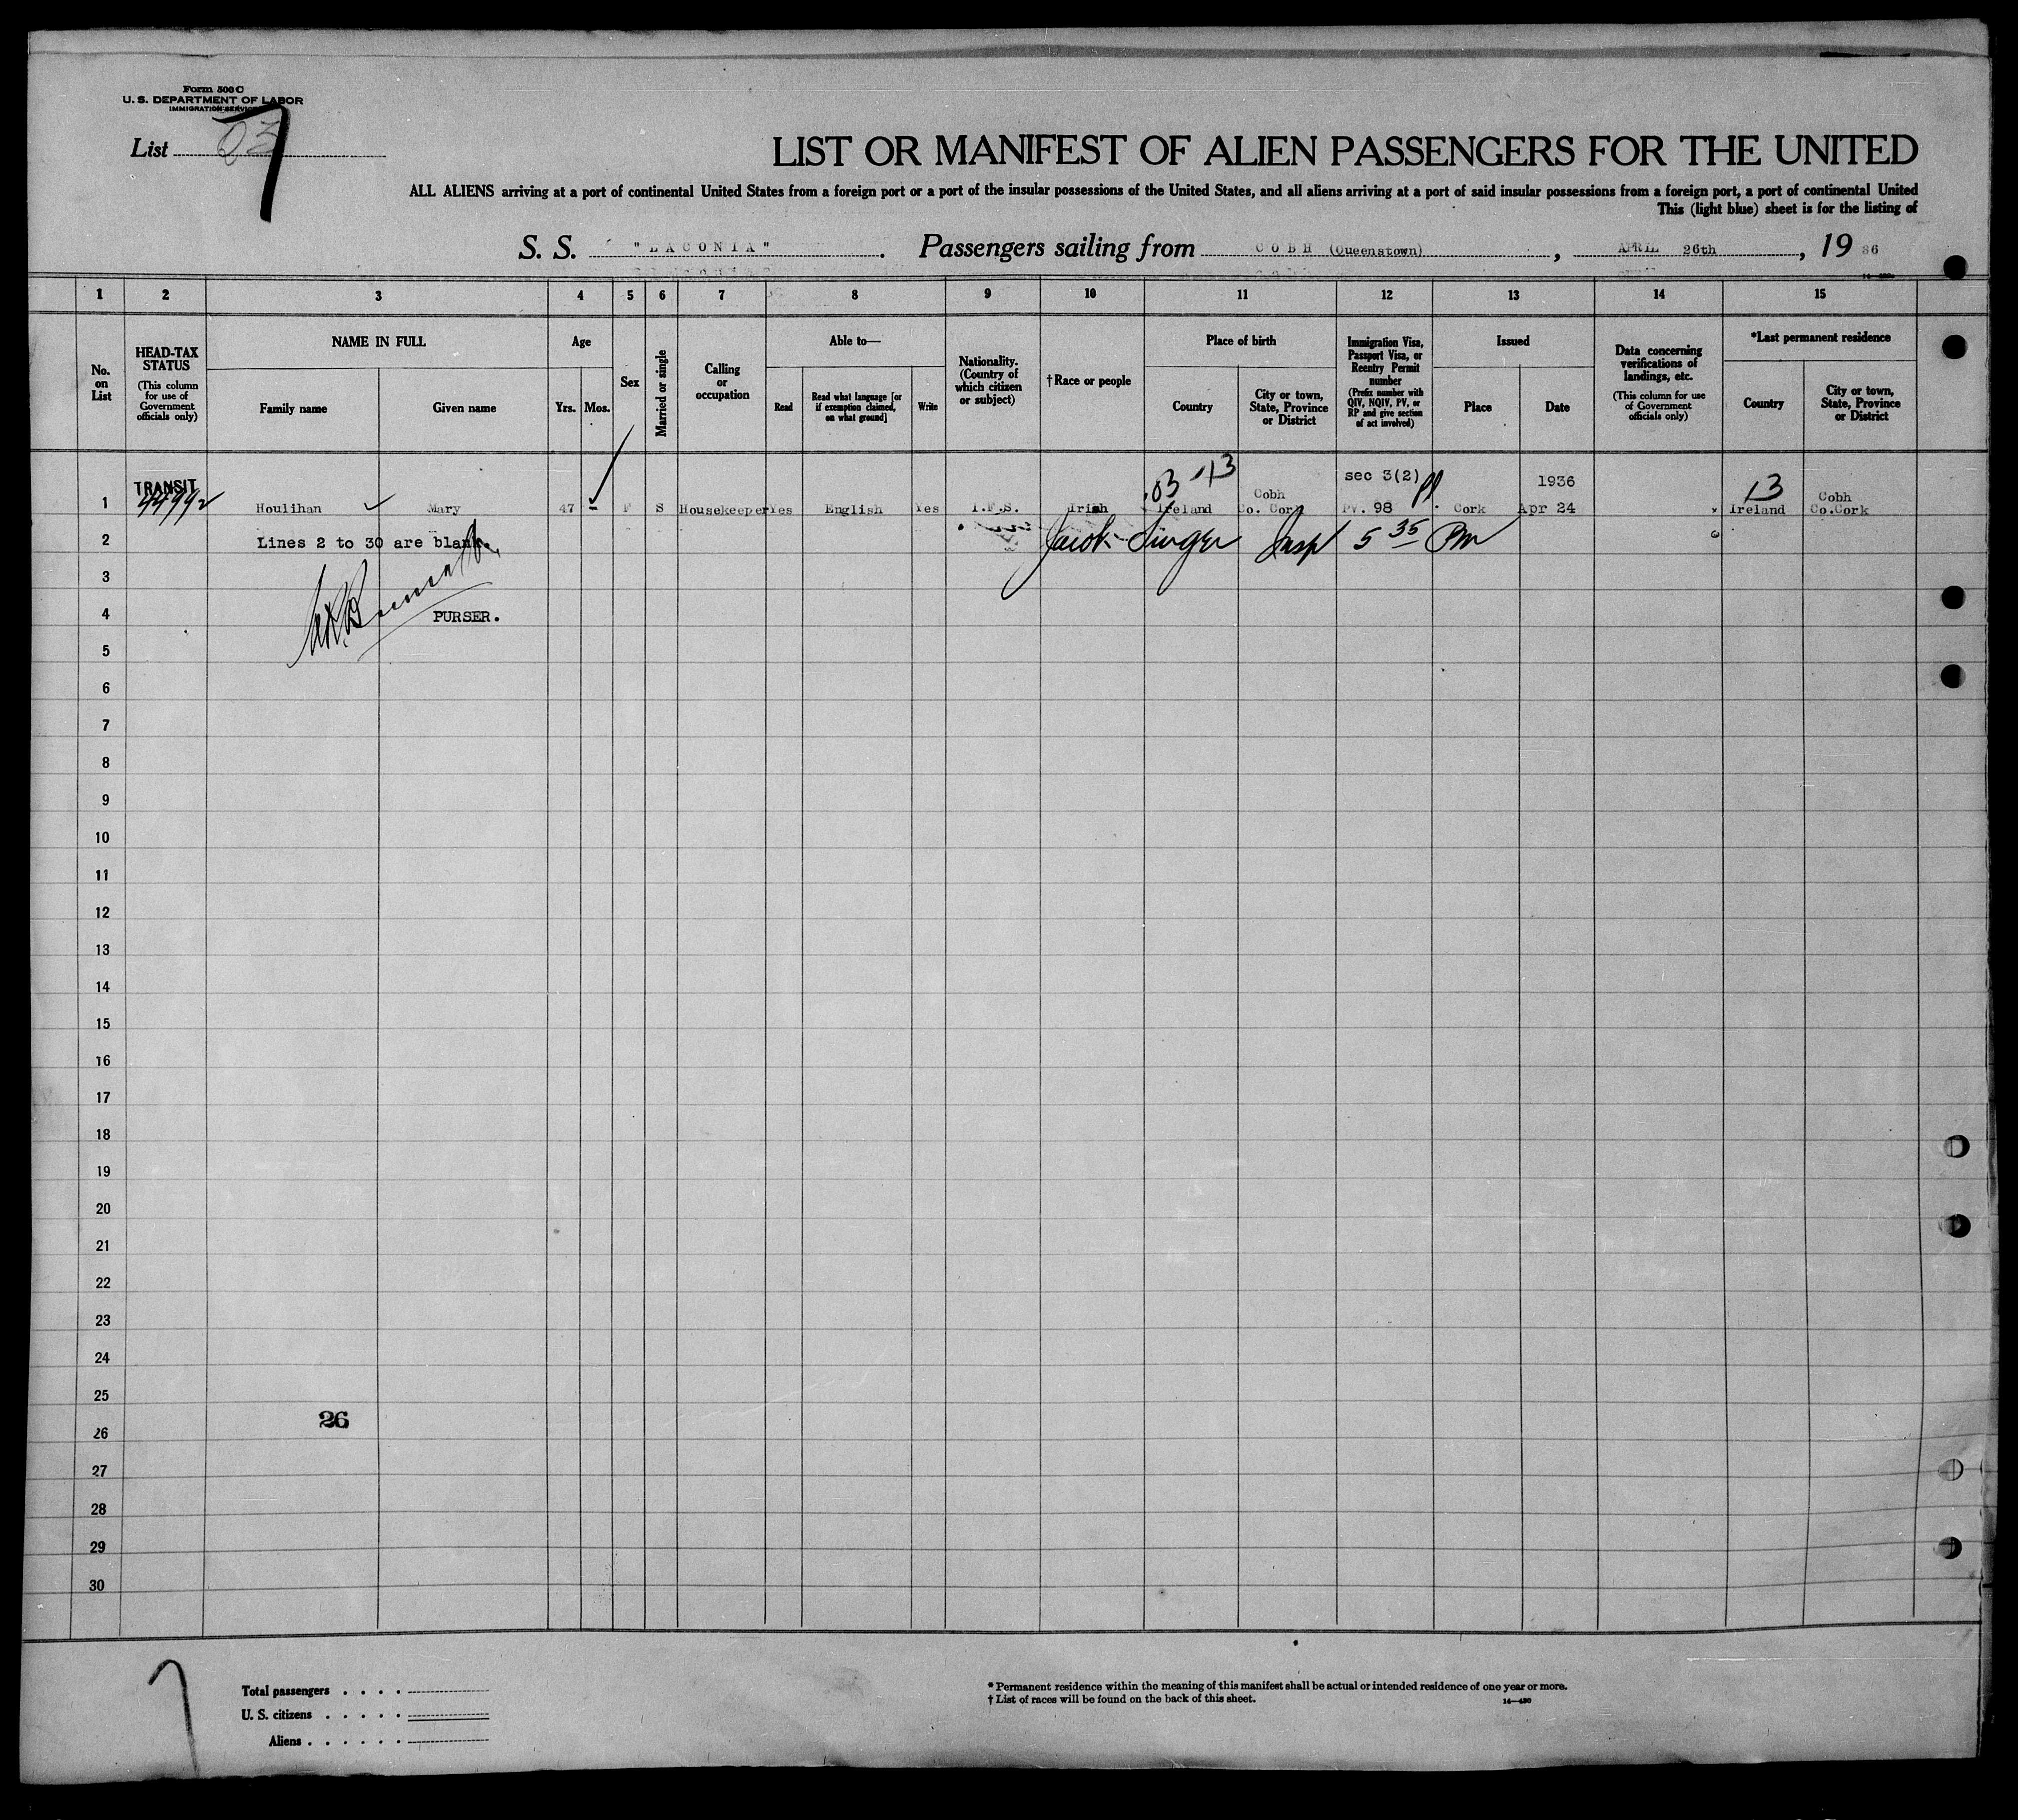 Form 500 C
U. S. DEPARTMENT OF LABOR
IMMIGRATION SERVICE
List 7
LIST OR MANIFEST OF ALIEN PASSENGERS FOR THE UNITED
ALL ALIENS arriving at a port of continental United States from a foreign port or a port of the insular possessions of the United States, and all aliens arriving at a port of said insular possessions from a foreign port, a port of continental United
This (light blue) sheet is for the listing of
S. S. "LACONIA". Passengers sailing from COBH (Queenstown), APRIL 26th, 1936
1 2 3 4 5 6 7 8 9 10 11 12 13 14 15
No. on List
HEAD-TAX STATUS (This column for use of Government officials only)
NAME IN FULL
Family name
Given name
Age
Yrs.
Mos.
Sex
Married or single
Calling or occupation
Able to—
Read
Read what language [or if exemption claimed, on what ground]
Write
Nationality. (Country of which citizen or subject)
†Race or people
Place of birth
Country
City or town, State, Province or District
Immigration Visa, Passport Visa, or Reentry Permit number (Prefix number with QIV, NQIV, PV, or RP and give section of act involved)
Issued
Place
Date
Data concerning verifications of landings, etc. (This column for use of Government officials only)
*Last permanent residence
Country
City or town, State, Province or District
TRANSIT
.03 13
sec 3(2)
1936
13
1 Houlihan Mary 47 - F S Housekeeper Yes English Yes I.F.S. Irish Ireland Cobh Co. Cork PV. 98 Cork Apr 24 Ireland Cobh Co.Cork
2 Lines 2 to 30 are blank. Jacob Singer Insp 5 35 PM
3
4 PURSER.
5
6
7
8
9
10
11
12
13
14
15
16
17
18
19
20
21
22
23
24
25
26
26
27
28
29
30
7
Total passengers . . . .
U. S. citizens . . . . .
Aliens . . . . . .
* Permanent residence within the meaning of this manifest shall be actual or intended residence of one year or more.
† List of races will be found on the back of this sheet.
14—430